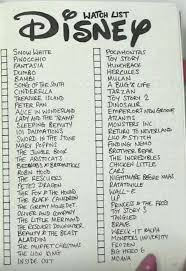 WATCH LIST
DISNEY
SNOW WHITE
PINOCCHIO
FANTASIA
DUMBO
BAMBI
SONG OF THE SOUTH
CINDERELLA
TREASURE ISLAND
PETER PAN
ALICE IN WONDERLAND
LADY AND THE TRAMP
SLEEPING BEAUTY
101 DALMATIONS
SWORD IN THE STONE
MARY POPPINS
THE JUNGLE BOOK
THE ARISTOCATS
BEDKNOBS & BROOMSTICKS
ROBIN HOOD
THE RESCUERS
PETE'S DRAGON
THE FOX & THE HOUND
THE BLACK CAULDRON
THE GREAT MOUSE DET.
OLIVER AND COMPANY
THE LITTLE MERMAID
THE RESCUERS DOWNUNDER
BEAUTY & THE BEAST
ALADDIN
THE MUPPET CHRISTMAS
THE LION KING
INSIDE OUT
POCAHONTAS
TOY STORY
HUNCHBACK
HERCULES
MULAN
A BUG'S LIFE
TARZAN
TOY STORY 2
DINOSAUR
EMPERORS NEW GROOVE
ATLANTIS
MONSTERS INC
RETURN TO NEVERLAND
LILO & STITCH
FINDING NEMO
BROTHER BEAR
THE INCREDIBLES
CHICKEN LITTLE
CARS
MEET THE ROBINSONS
RATATOUILLE
WALL-E
UP
PRINCESS & THE FROG
TOY STORY 3
TANGLED
BRAVE
WRECK-IT RALPH
MONSTERS UNIVERSITY
FROZEN
BIG HERO 6
MOANA